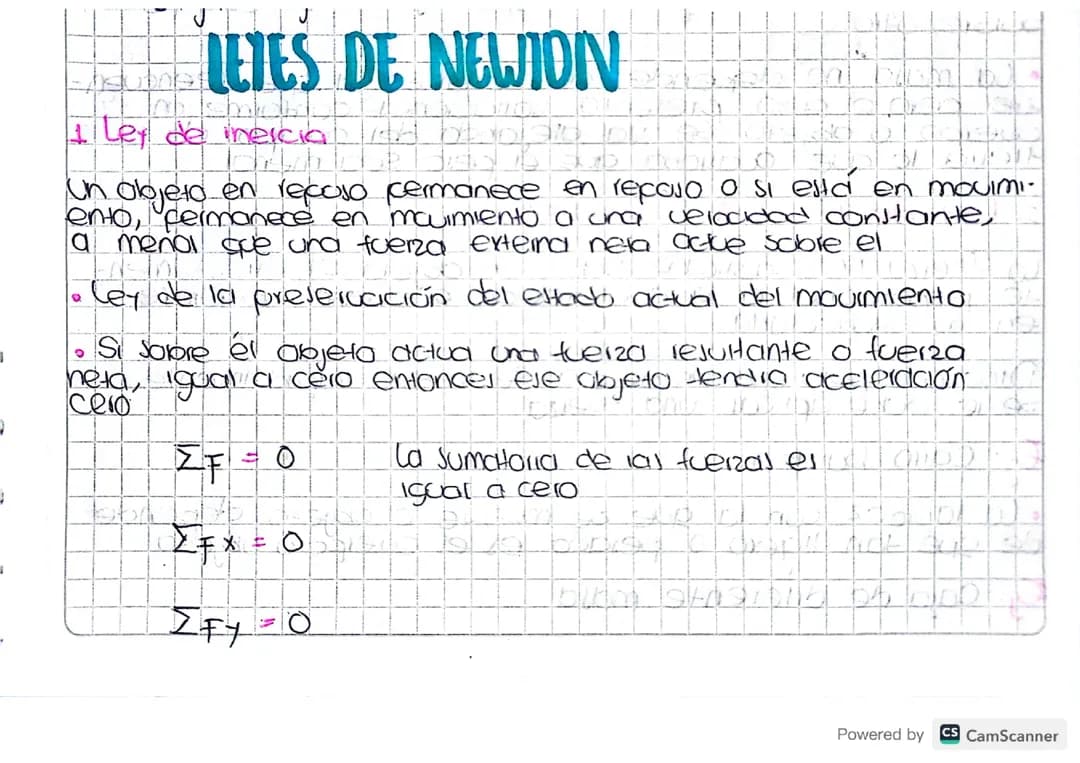 LEYES DE NEWTON
1 Ley de inercia
Un objeto en reposo permanece en reposo o si está en movimi-
ento, permanece en movimiento a una velocidad constante,
a menos que una fuerza externa neta actue sobre el
• Ley de la preservación del estado actual del movimiento
• Si sobre él objeto actua una fuerza resultante o fuerza
neta, igual a cero entonces ese objeto tendra aceleración
cero
ΣF = 0 La sumatoria de las fuerzas es
igual a cero
ΣFx = 0
ΣFy = 0
Powered by CS CamScanner